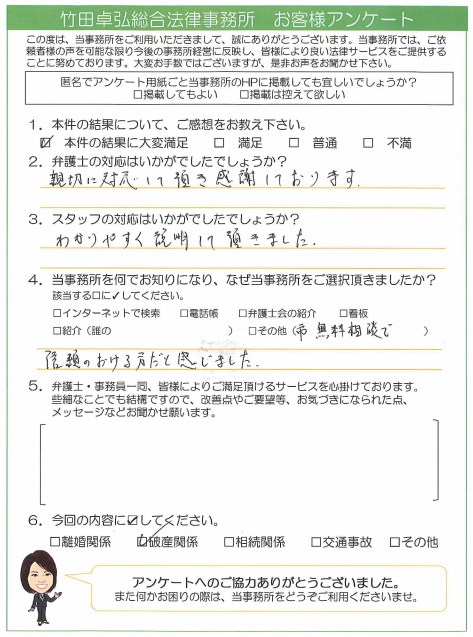 竹田卓弘総合法律事務所　お客様アンケート
この度は、当事務所をご利用いただきまして、誠にありがとうございます。当事務所では、ご依
頼者様の声を可能な限り今後の事務所経営に反映し、皆様により良い法律サービスをご提供する
ことに努めております。大変お手数ではございますが、是非お声をお聞かせ下さい。
匿名でアンケート用紙ごと当事務所のHPに掲載しても宜しいでしょうか？
□掲載してもよい　□掲載は控えて欲しい
１．本件の結果について、ご感想をお教え下さい。
☑ 本件の結果に大変満足　□ 満足　□ 普通　□ 不満
２．弁護士の対応はいかがでしたでしょうか？
親切に対応して頂き感謝しております。
３．スタッフの対応はいかがでしたでしょうか？
わかりやすく説明して頂きました。
４．当事務所を何でお知りになり、なぜ当事務所をご選択頂きましたか？
該当する□に✓してください。
□インターネットで検索　□電話帳　□弁護士会の紹介　□看板
□紹介（誰の　　　　　）　□その他（市 無料相談で　）
信頼のおける方だと感じました。
５．弁護士・事務員一同、皆様によりご満足頂けるサービスを心掛けております。
些細なことでも結構ですので、改善点やご要望等、お気づきになられた点、
メッセージなどお聞かせ願います。
６．今回の内容に☑してください。
□離婚関係　☑破産関係　□相続関係　□交通事故　□その他
アンケートへのご協力ありがとうございました。
また何かお困りの際は、当事務所をどうぞご利用くださいませ。